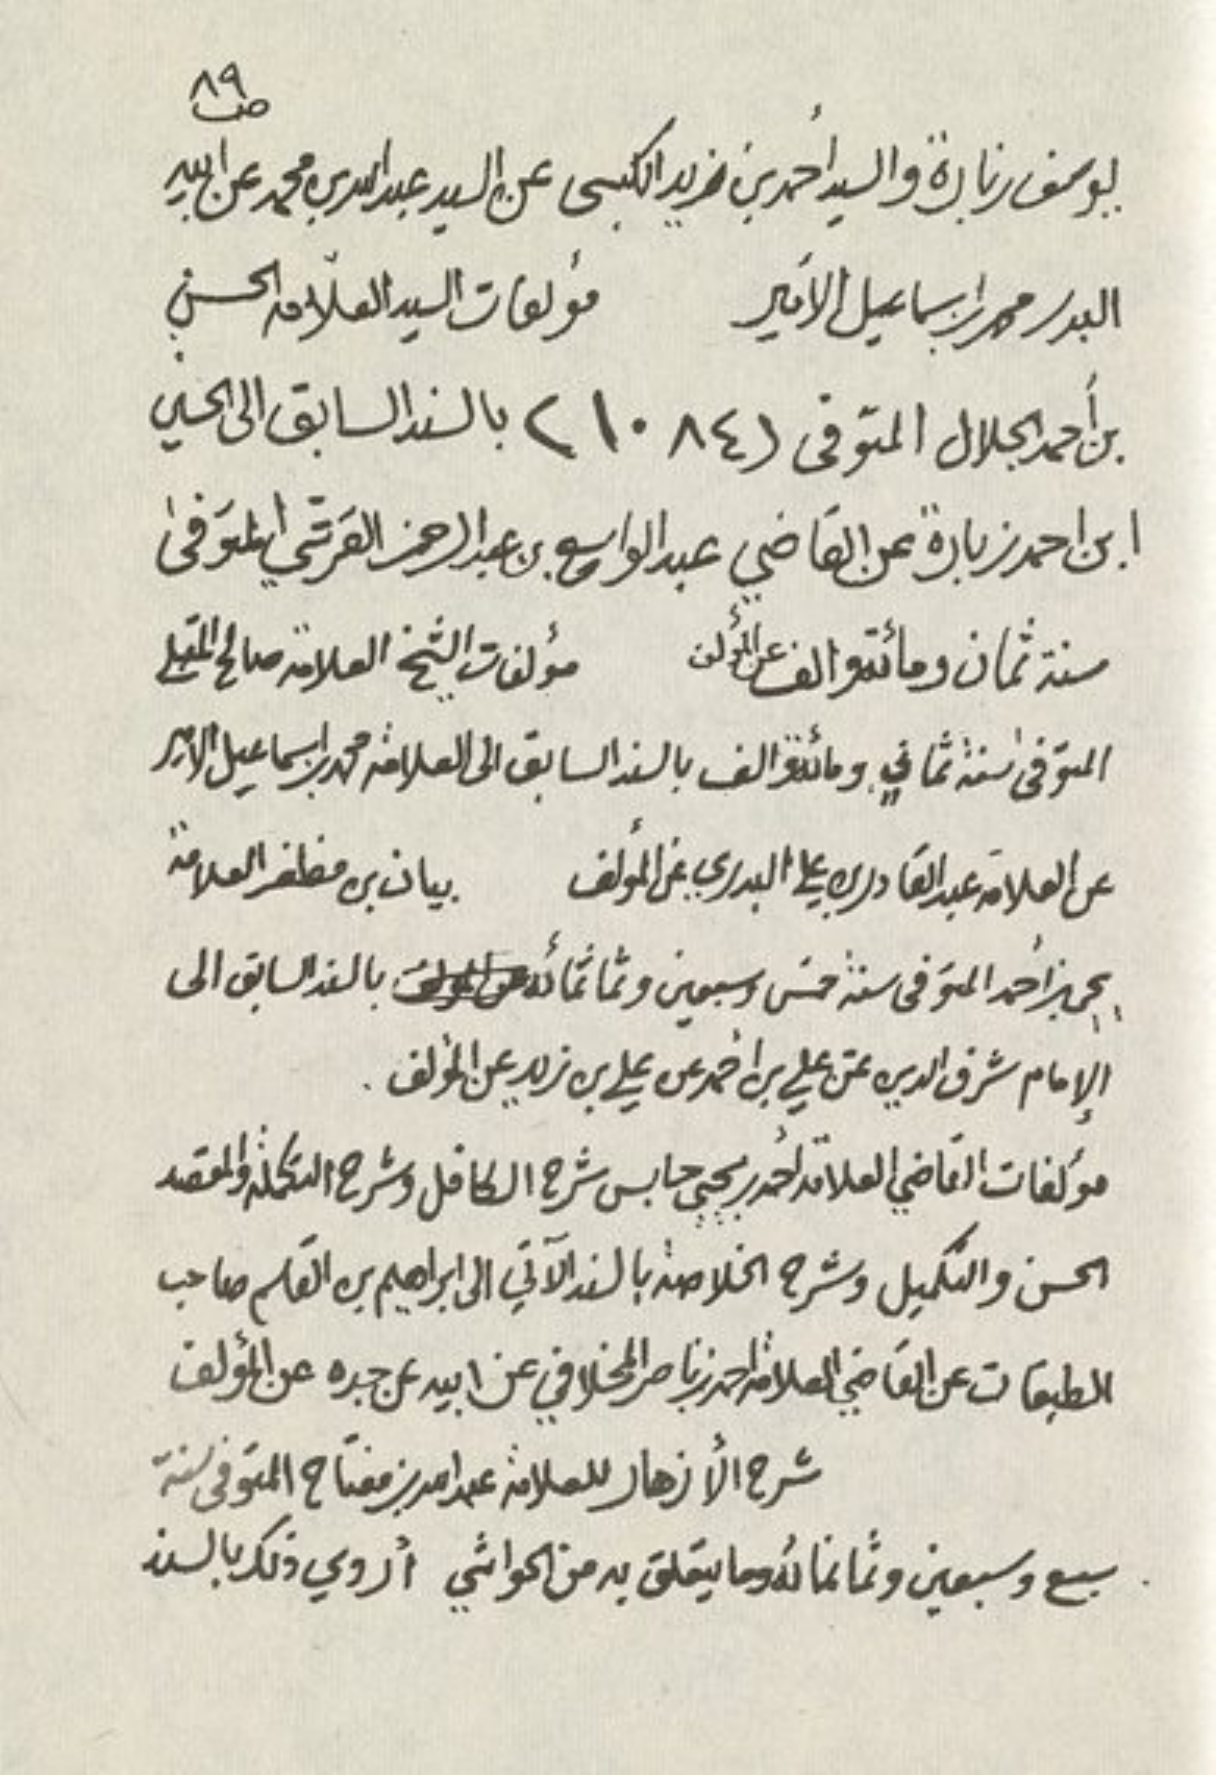 ٨٩
ص
يوسف زبارة والسيد أحمد بن زيد الكبسي عن السيد عبدالله بن محمد عن ابيه
البدر محمد بن اسماعيل الأمير مؤلفات السيد العلّامة الحسن
بن أحمد الجلال المتوفى (١٠٨٤) بالسند السابق الى الحسين
ابن احمد زبارة عن القاضي عبدالواسع بن عبدالرحمن القرشي المتوفى
سنة ثمان ومائة والف عن المؤلف مؤلفات الشيخ العلامة صالح المقبلي
المتوفى سنة ثماني ومائة والف بالسند السابق الى العلامة محمد بن اسماعيل الامير
عن العلامة عبدالقادر بن علي البدري عن المؤلف بيان بن مظفر العلامة
يحي بن أحمد المتوفى سنة خمس وسبعين وثمانمائة عن المؤلف بالسند السابق الى
الإمام شرف الدين عن علي بن أحمد عن علي بن زيد عن المؤلف .
مؤلفات القاضي العلامة أحمد بن يحيى حابس شرح الكافل وشرح التكملة والمقصد
الحسن والتكميل وشرح الخلاصة بالسند الآتي الى ابراهيم بن القاسم صاحب
الطبقات عن القاضي العلامة احمد بن ناصر المخلافي عن ابيه عن جده عن المؤلف
شرح الأزهار للعلامة عبدالله بن مفتاح المتوفى سنة
سبع وسبعين وثمانمائة وما يتعلق به من الحواشي أروي ذلك بالسند